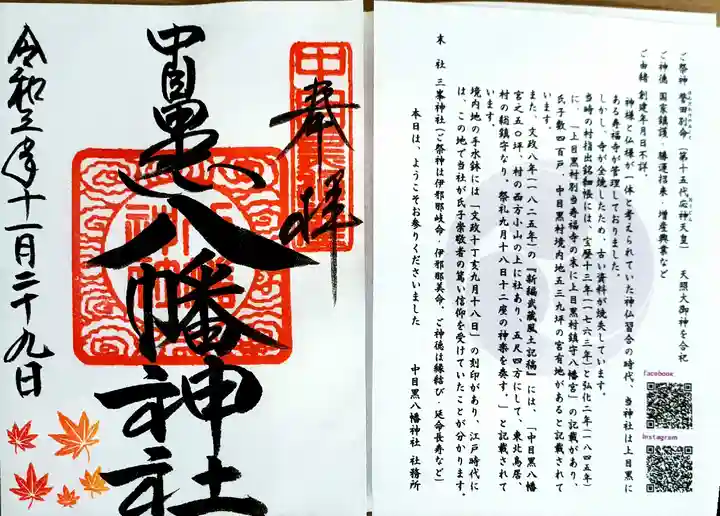 奉拝
中目黒八幡神社
令和三年十一月二十九日
ご祭神 誉田別命(第十五代応神天皇) 天照大御神を合祀
ご神徳 国家鎮護・勝運招来・増産興業など
ご由緒 創建年月日不詳。
神様と仏様が一体と考えられていた神仏習合の時代、当神社は上目黒に
ある寿福寺が管理しておりました。
しかし、寺が全焼したため、古い資料が焼失しています。
当時の村指出銘細帳には、宝暦十三年(一七六三年)と弘化二年(一八四五年)
に、「上目黒村別当寿福寺の末に上目黒村鎮守八幡宮」の記載があり、
氏子数一四一百戸、中目黒村境内地五三九坪の宮有地があると記されて
います。
また、文政八年(一八二五年)の『新編武蔵風土記稿』には、「中目黒八幡
宮之五〇坪、村の西方小山の上に社あり、五尺四方にして、東北鳥居、
村の総鎮守なり、祭礼九月十八日十二座の神楽を奏す。」と記載されて
います。
境内地の手水鉢には「文政十丁亥九月十八日」の刻印があり、江戸時代に
は、この地で当社が氏子崇敬者の篤い信仰を受けていたことが分かります。
末 社 三峯神社(ご祭神は伊邪那岐命・伊邪那美命、ご神徳は縁結び・延命長寿など)
本日は、ようこそお参りくださいました
中目黒八幡神社 社務所
facebook
Instagram